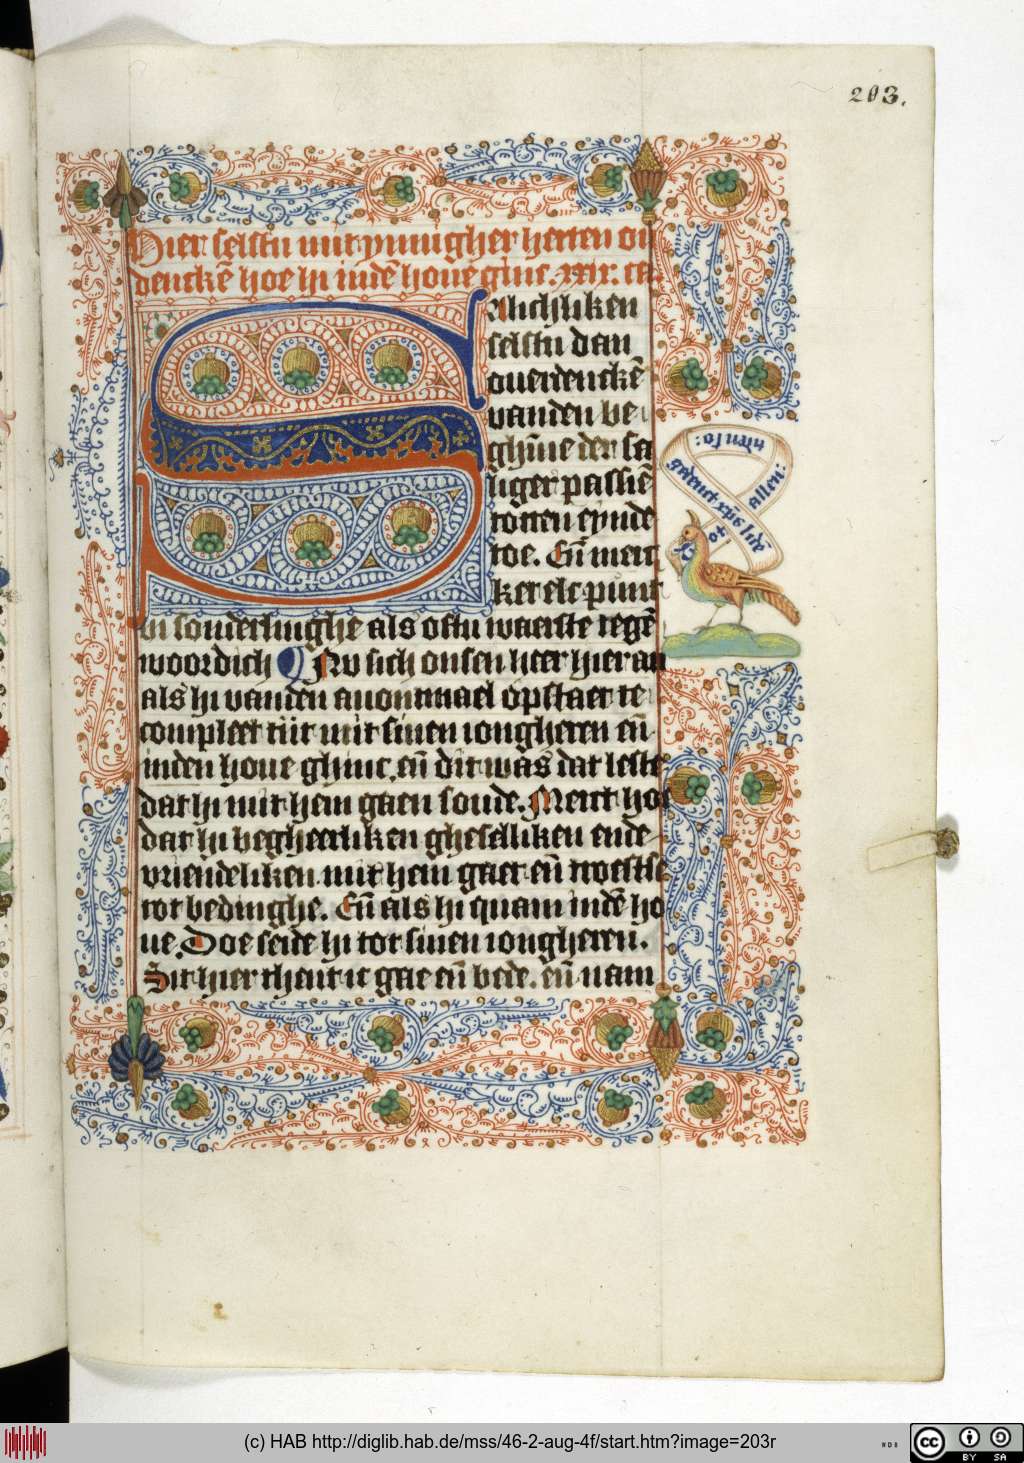 203.
Hier selstu mit ynnigher herten ou
dencke̅ hoe hi inde̅ houe ginc. xxix. ca.
Salichliken
selstu dan
ouerdencke̅
vanden be
ghi̅ne der sa
liger passie̅
totten eynde
toe. En̅ merc
ker elc punt
in sonderlinghe als oftu waerste tege̅
woordich Nv sich onsen heer hier an
als hi vanden auontmael opstaet te
compleet tiit mit sinen iongheren en̅
inden houe ghinc. en̅ dit was dat leste
dat hi mit hem gaen soude. Merct hoe
dat hi begheerliken gheselliken ende
vriendeliken mit hem gaet en̅ troestse
tot bedinghe. En̅ als hi quam inde̅ ho
ue. Doe seide hi tot sinen iongheren.
Sit hier thent ic gae en̅ bede. en̅ nam
allen:
(c) HAB http://diglib.hab.de/mss/46-2-aug-4f/start.htm?image=203r
WDB
cc
BY SA